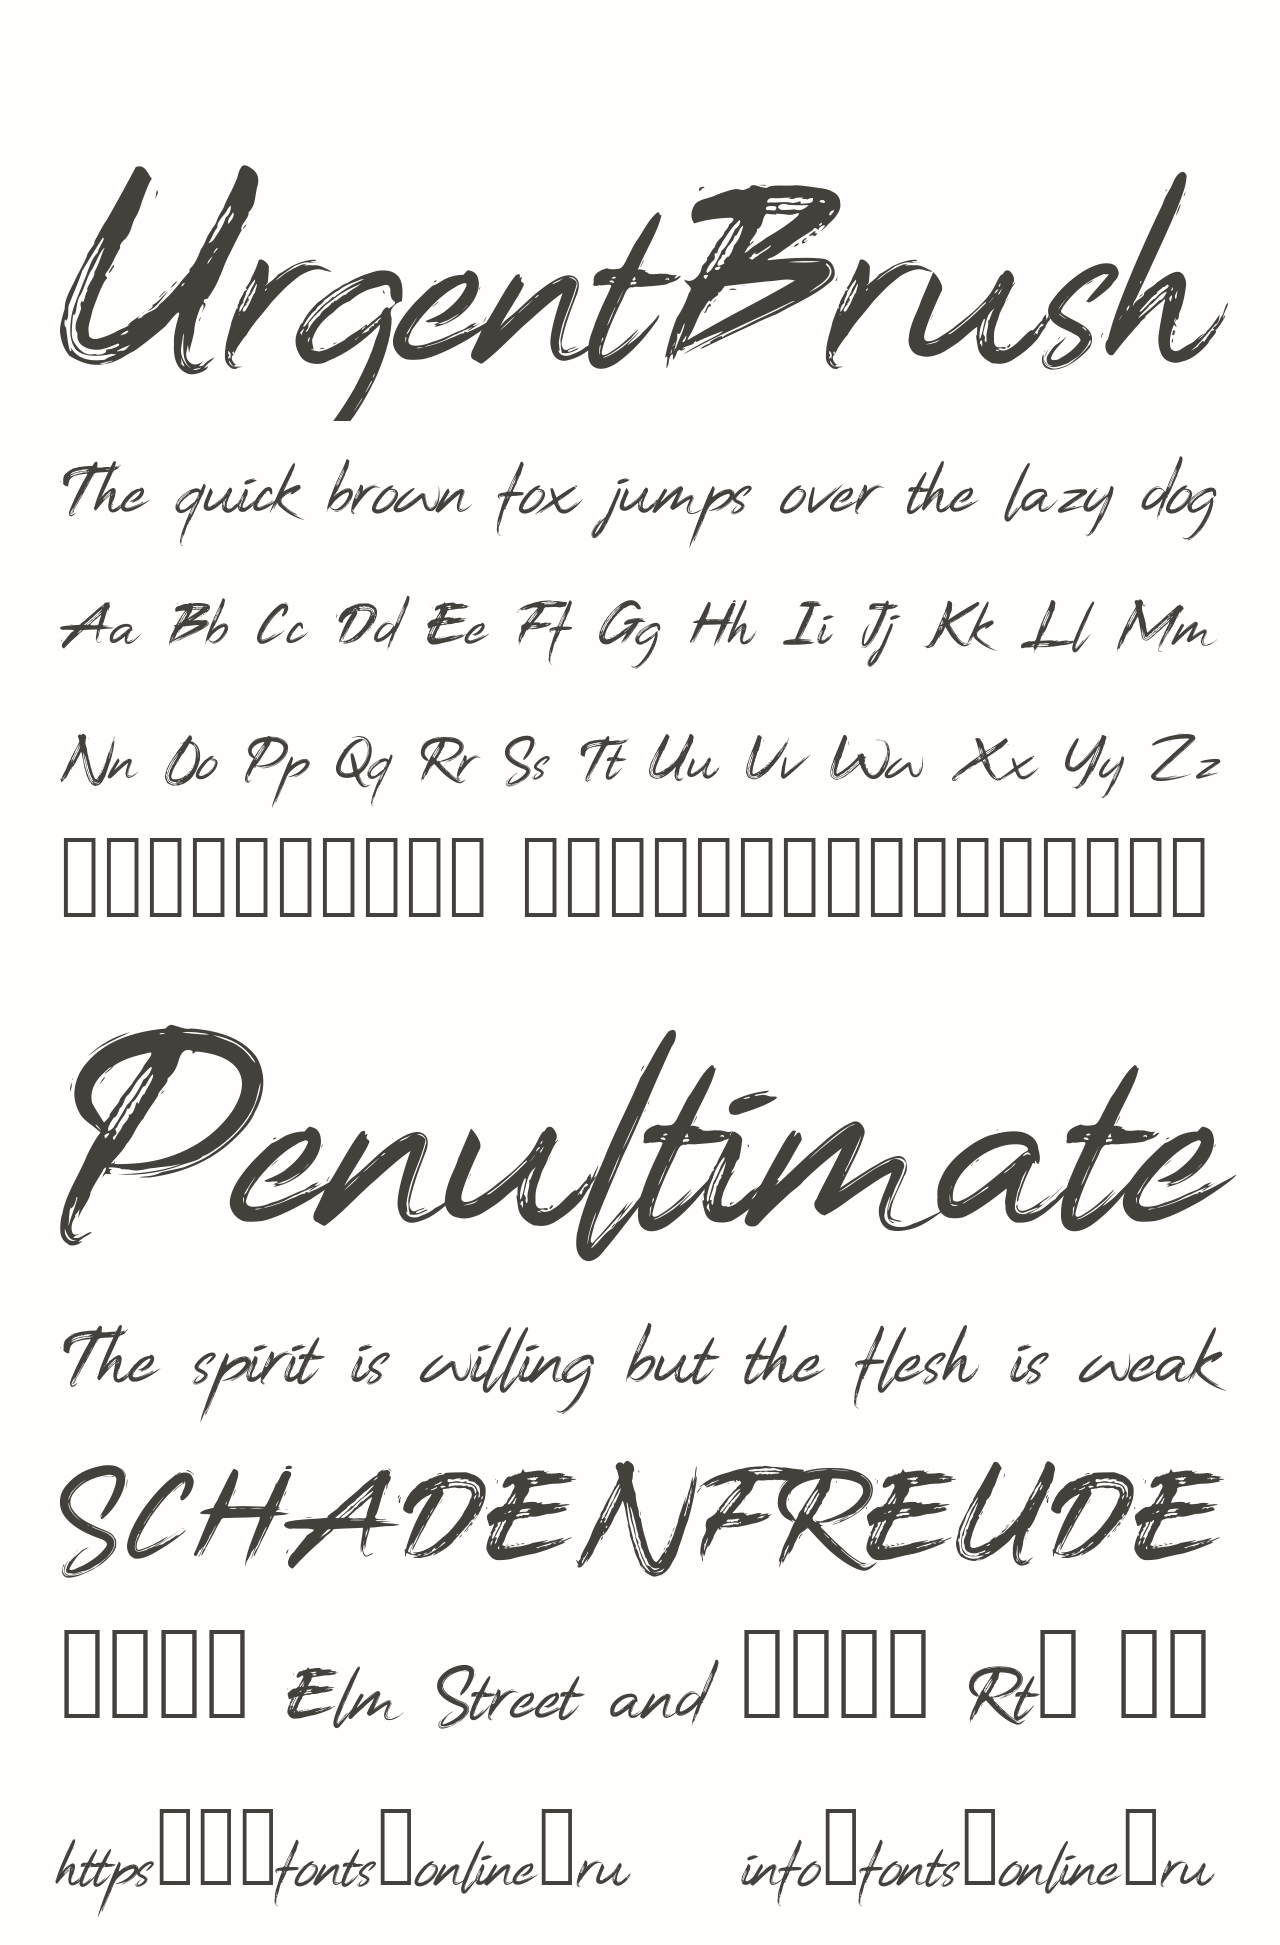 UrgentBrush
The quick brown fox jumps over the lazy dog
Aa Bb Cc Dd Ee Ff Gg Hh Ii Jj Kk Ll Mm
Nn Oo Pp Qq Rr Ss Tt Uu Vv Ww Xx Yy Zz
▯▯▯▯▯▯▯▯▯▯ ▯▯▯▯▯▯▯▯▯▯▯▯▯▯▯▯
Penultimate
The spirit is willing but the flesh is weak
SCHADENFREUDE
▯▯▯▯ Elm Street and ▯▯▯▯ Rt▯ ▯▯
https▯▯▯fonts▯online▯ru info▯fonts▯online▯ru